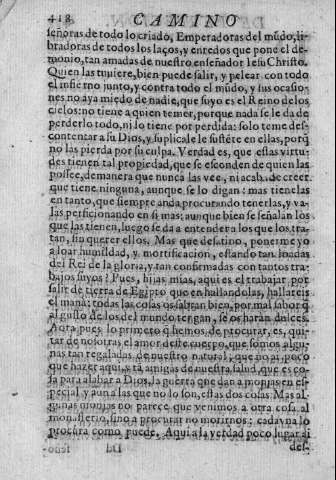 418 CAMINO
señoras de todo lo criado, Emperadoras del mũdo, li-
bradoras de todos los laços, y enredos que pone el de-
monio, tan amadas de nuestro enseñador Iesu Christo.
Quien las tuuiere, bien puede salir, y pelear con todo
el infierno junto, y contra todo el mũdo, y sus ocasio-
nes no aya miedo de nadie, que suyo es el Reino de los
cielos: no tiene a quien temer, porque nada se le da de
perderlo todo, ni lo tiene por perdida: solo teme des-
contentar a su Dios, y suplicale le sustẽte en ellas, porq̃
no las pierda por su culpa. Verdad es, que estas virtu-
des tienen tal propiedad, que se esconden de quien las
possee, demanera que nunca las vee, ni acaba de creer
que tiene ninguna, aunque se lo digan: mas tienelas
en tanto, que siempre anda procurando tenerlas, y va-
las perficionando en si mas: aunque bien se señalan los
que las tienen, luego se da a entender a los que los tra-
tan, sin querer ellos. Mas que desatino, ponerme yo
a loar humildad, y mortificacion, estando tan loadas
del Rei de la gloria, y tan confirmadas con tantos tra-
bajos suyos? Pues, hijas mias, aqui es el trabajar por
salir de tierra de Egipto que en hallandolas, hallareis
el mana: todas las cosas os sabran bien, por mal sabor q̃
al gusto de los del mundo tengan, se os haran dulces.
Aora pues lo primero q̃ hemos de procurar, es, qui-
tar de nosotras el amor deste cuerpo, que somos algu-
nas tan regaladas de nuestro natural, que no ai poco
que hazer aqui, y tã amigas de nuestra salud, que es co-
sa para alabar a Dios, la guerra que dan a monjas en es-
pecial y aun a las que no lo son, estas dos cosas. Mas al-
gunas monjas no parece que venimos a otra cosa al
monasterio, sino a procurar no morirnos: cada vna lo
procura como puede. Aqui a la verdad poco lugar ai
Dd des-